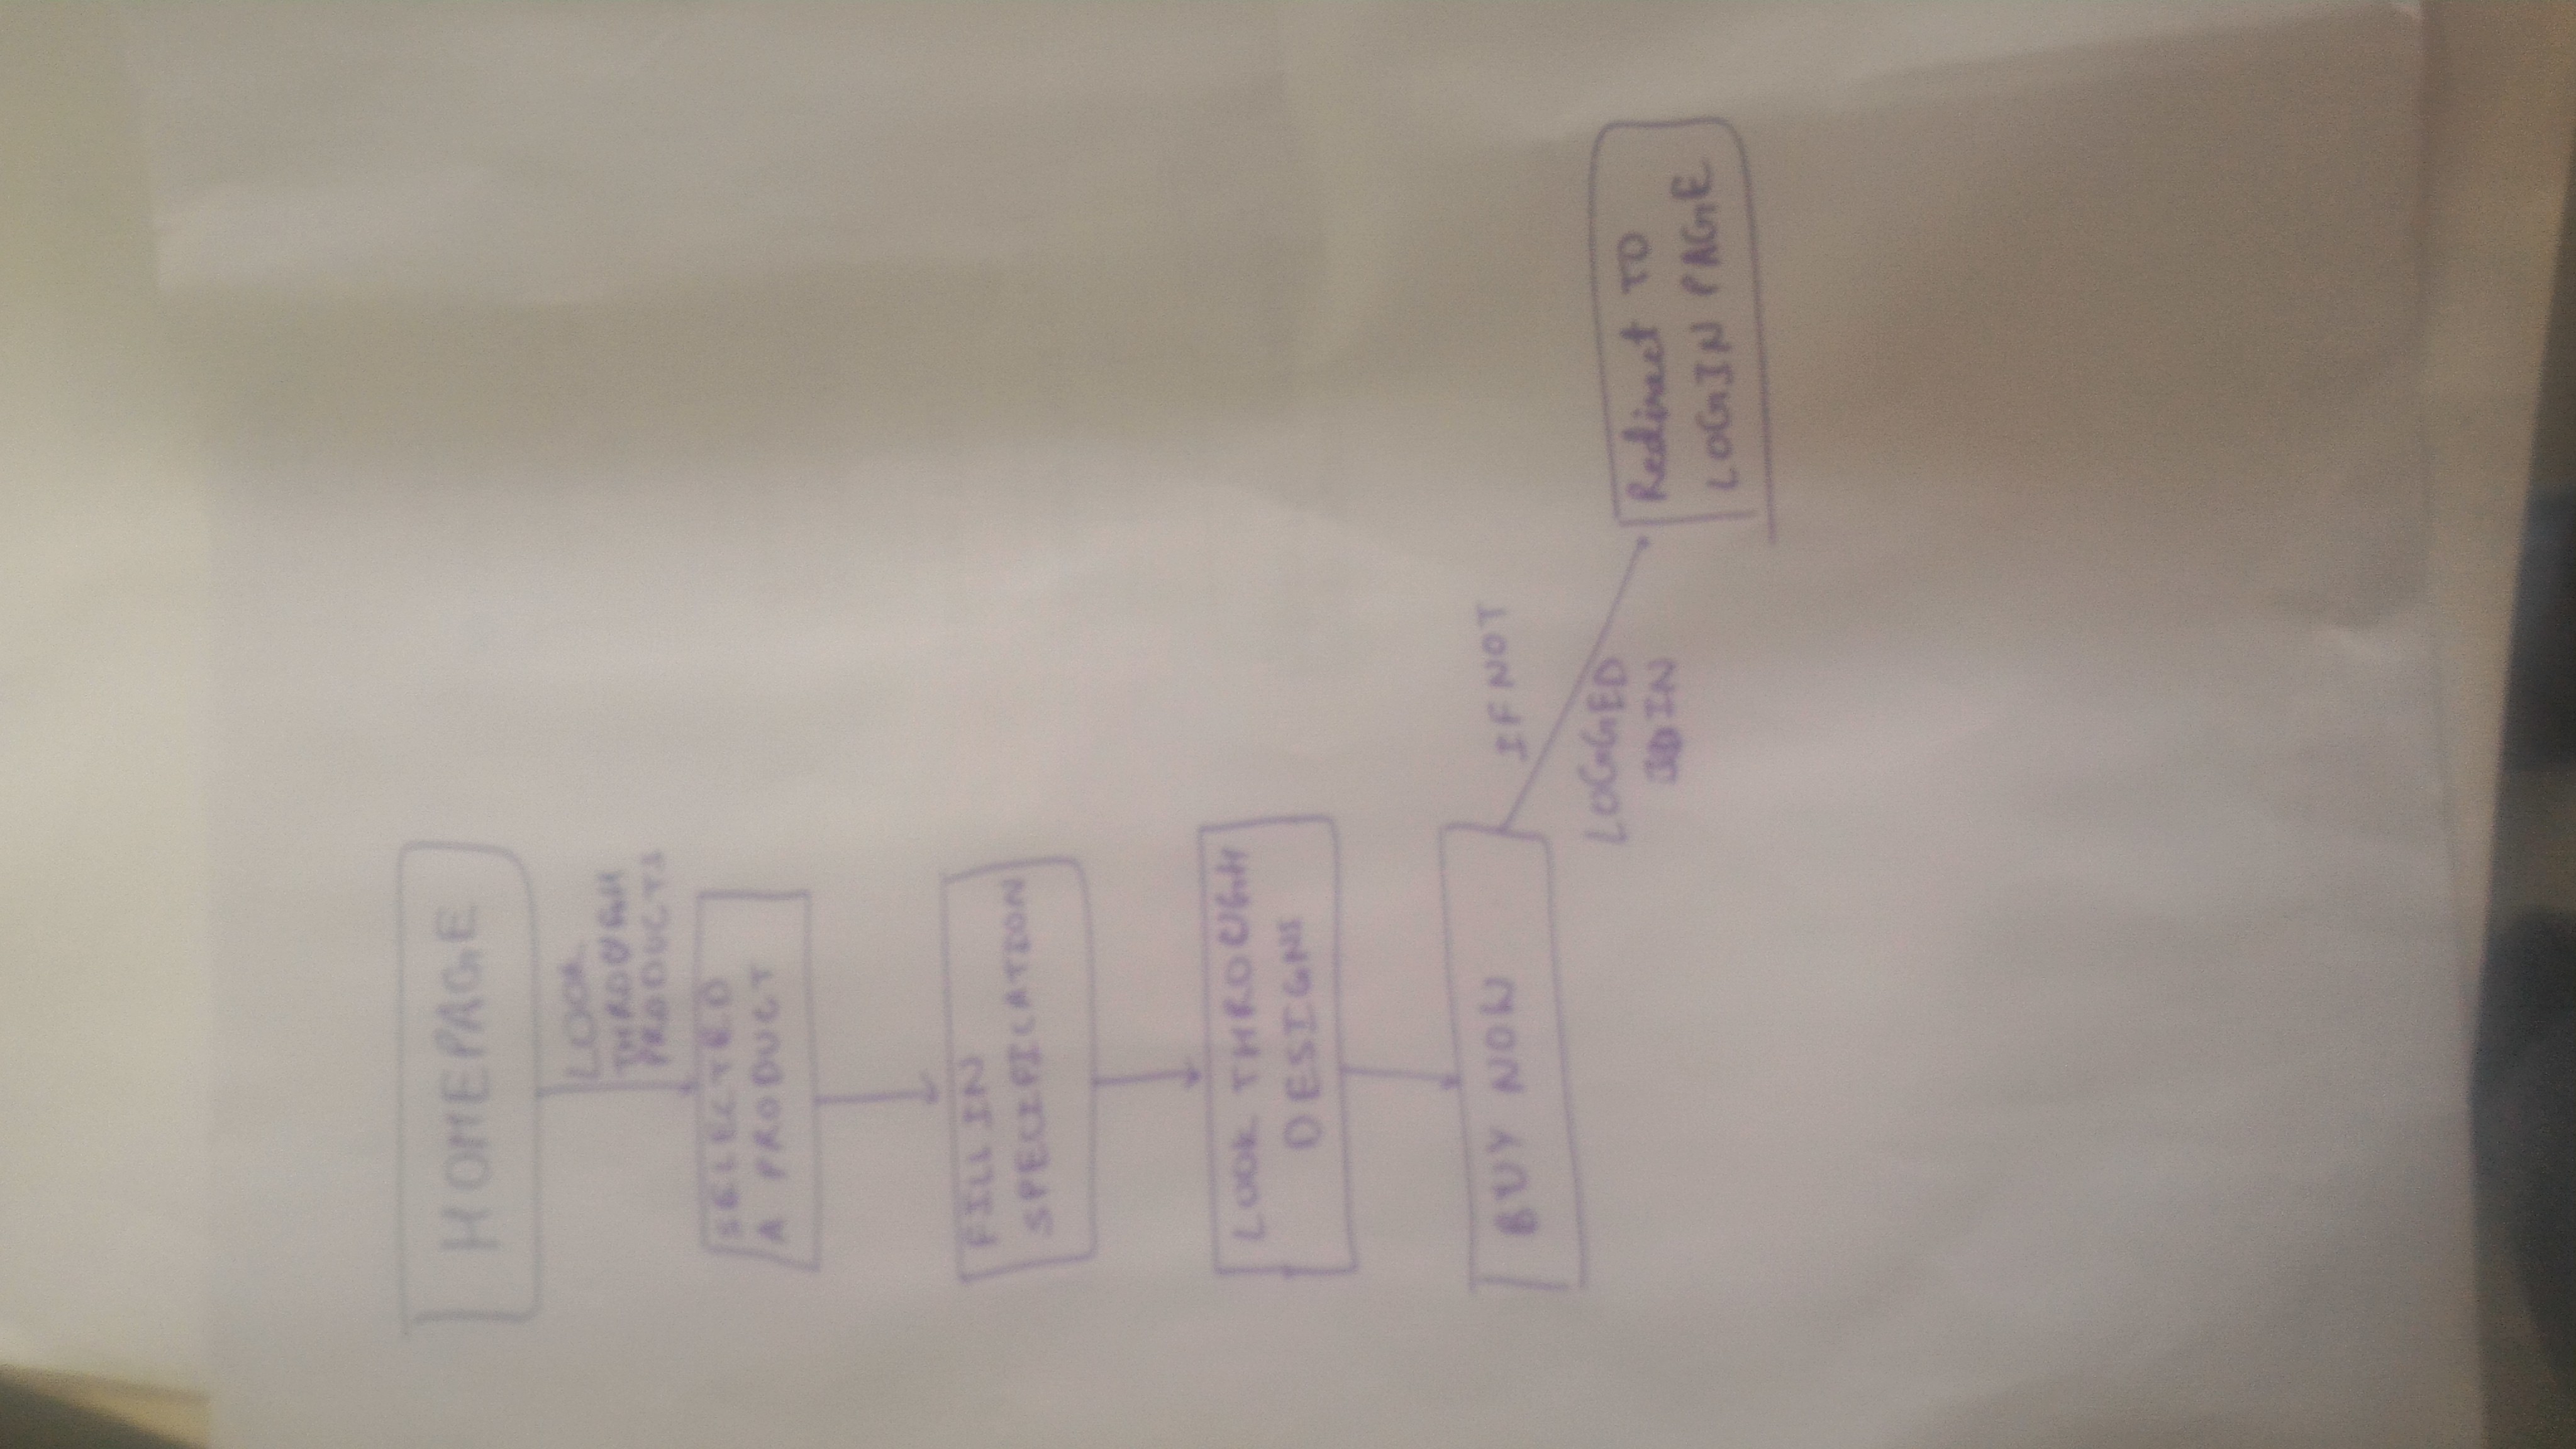 HOMEPAGE
LOOK
THROUGH
PRODUCTS
SELECTED
A PRODUCT
FILL IN
SPECIFICATION
LOOK THROUGH
DESIGNS
BUY NOW
IF NOT
LOGGED
IN
Redirect TO
LOGIN PAGE